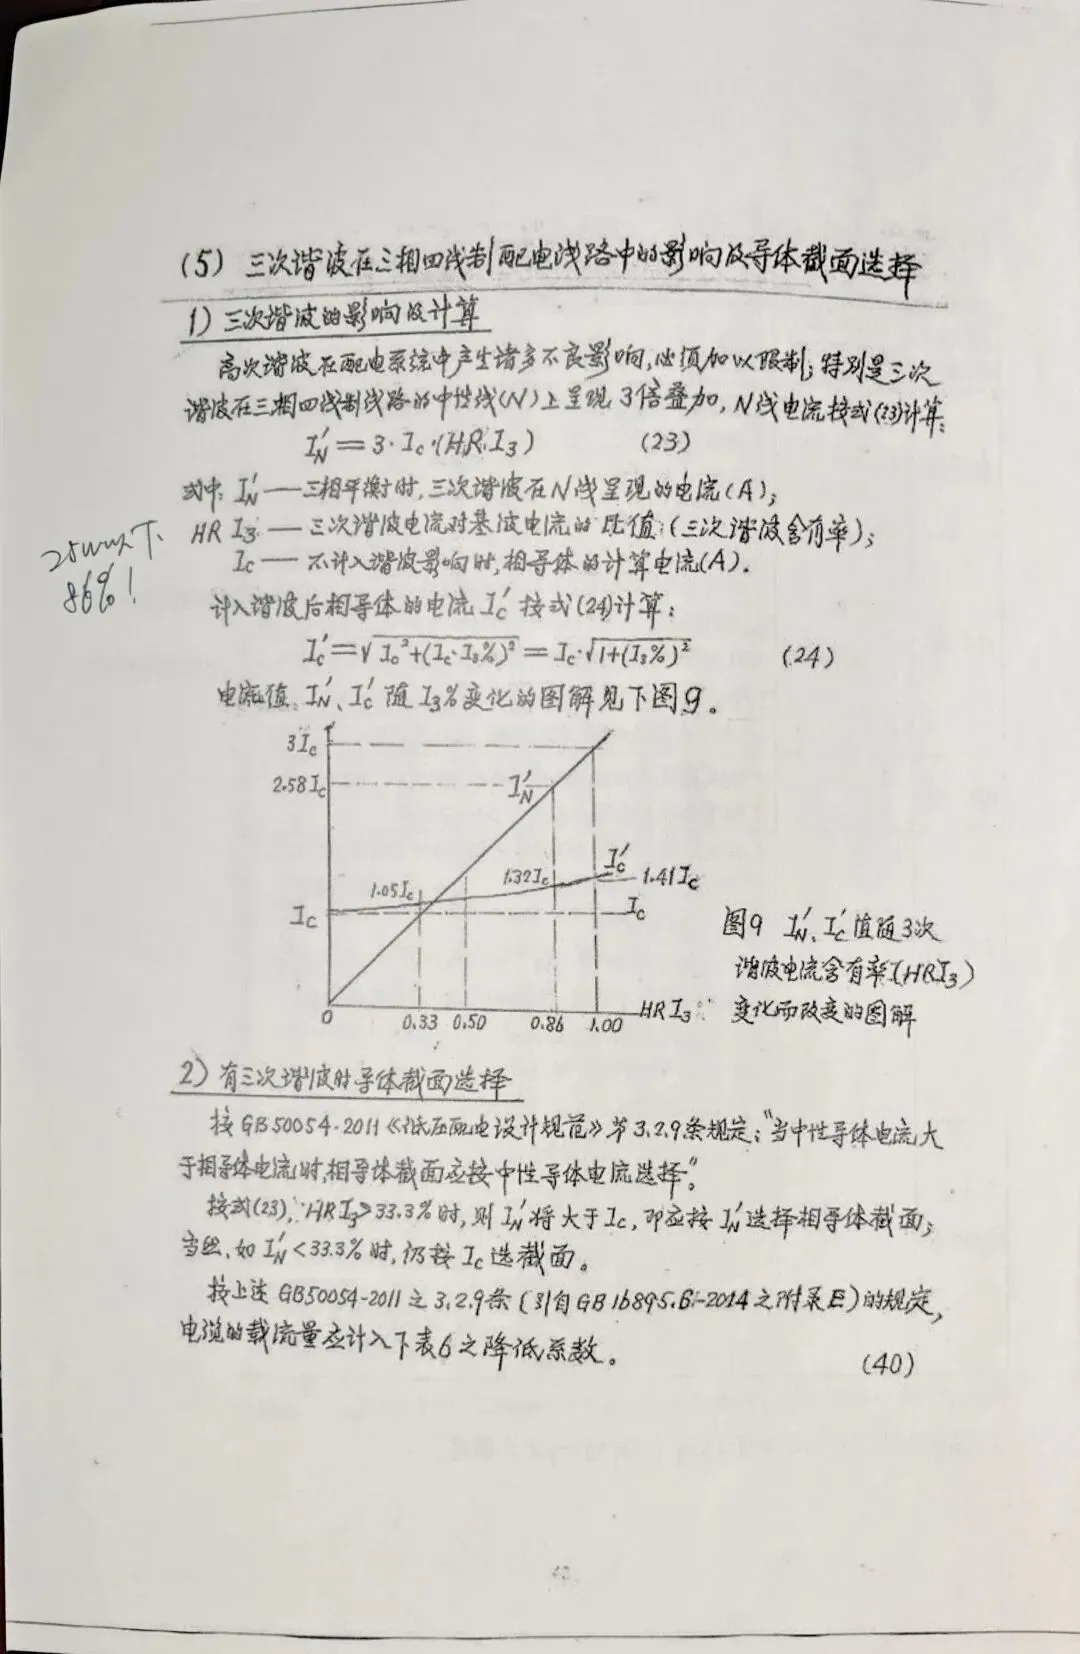 (5) 三次谐波在三相四线制配电线路中的影响及导体截面选择
1) 三次谐波的影响及计算
高次谐波在配电系统中产生诸多不良影响,必须加以限制;特别是三次
谐波在三相四线制线路的中性线(N)上呈现3倍叠加,N线电流按式(23)计算:
I′N = 3·Ic·(HRI3) (23)
式中: I′N——三相平衡时,三次谐波在N线呈现的电流(A);
HRI3——三次谐波电流对基波电流的比值(三次谐波含有率);
Ic——不计入谐波影响时,相导体的计算电流(A)。
25W以下
86%!
计入谐波后相导体的电流 I′c 按式(24)计算:
I′c=√Ic²+(Ic·I3%)² = Ic·√1+(I3%)² (24)
电流值 I′N、I′c 随 I3% 变化的图解见下图9。
3Ic
2.58Ic
I′N
1.05Ic
1.32Ic
I′c
1.41Ic
Ic
Ic
0 0.33 0.50 0.86 1.00
HRI3
图9 I′N、I′c值随3次
谐波电流含有率(HRI3)
变化而改变的图解
2) 有三次谐波时导体截面选择
按GB50054-2011《低压配电设计规范》第3.2.9条规定:"当中性导体电流大
于相导体电流时,相导体截面应按中性导体电流选择。"
按式(23), HRI3>33.3%时,则I′N将大于Ic,即应按I′N选择相导体截面;
当然,如I′N<33.3%时,仍按Ic选截面。
按上述GB50054-2011之3.2.9条(引自GB16895.6-2014之附录E)的规定,
电缆的载流量应计入下表6之降低系数。
(40)